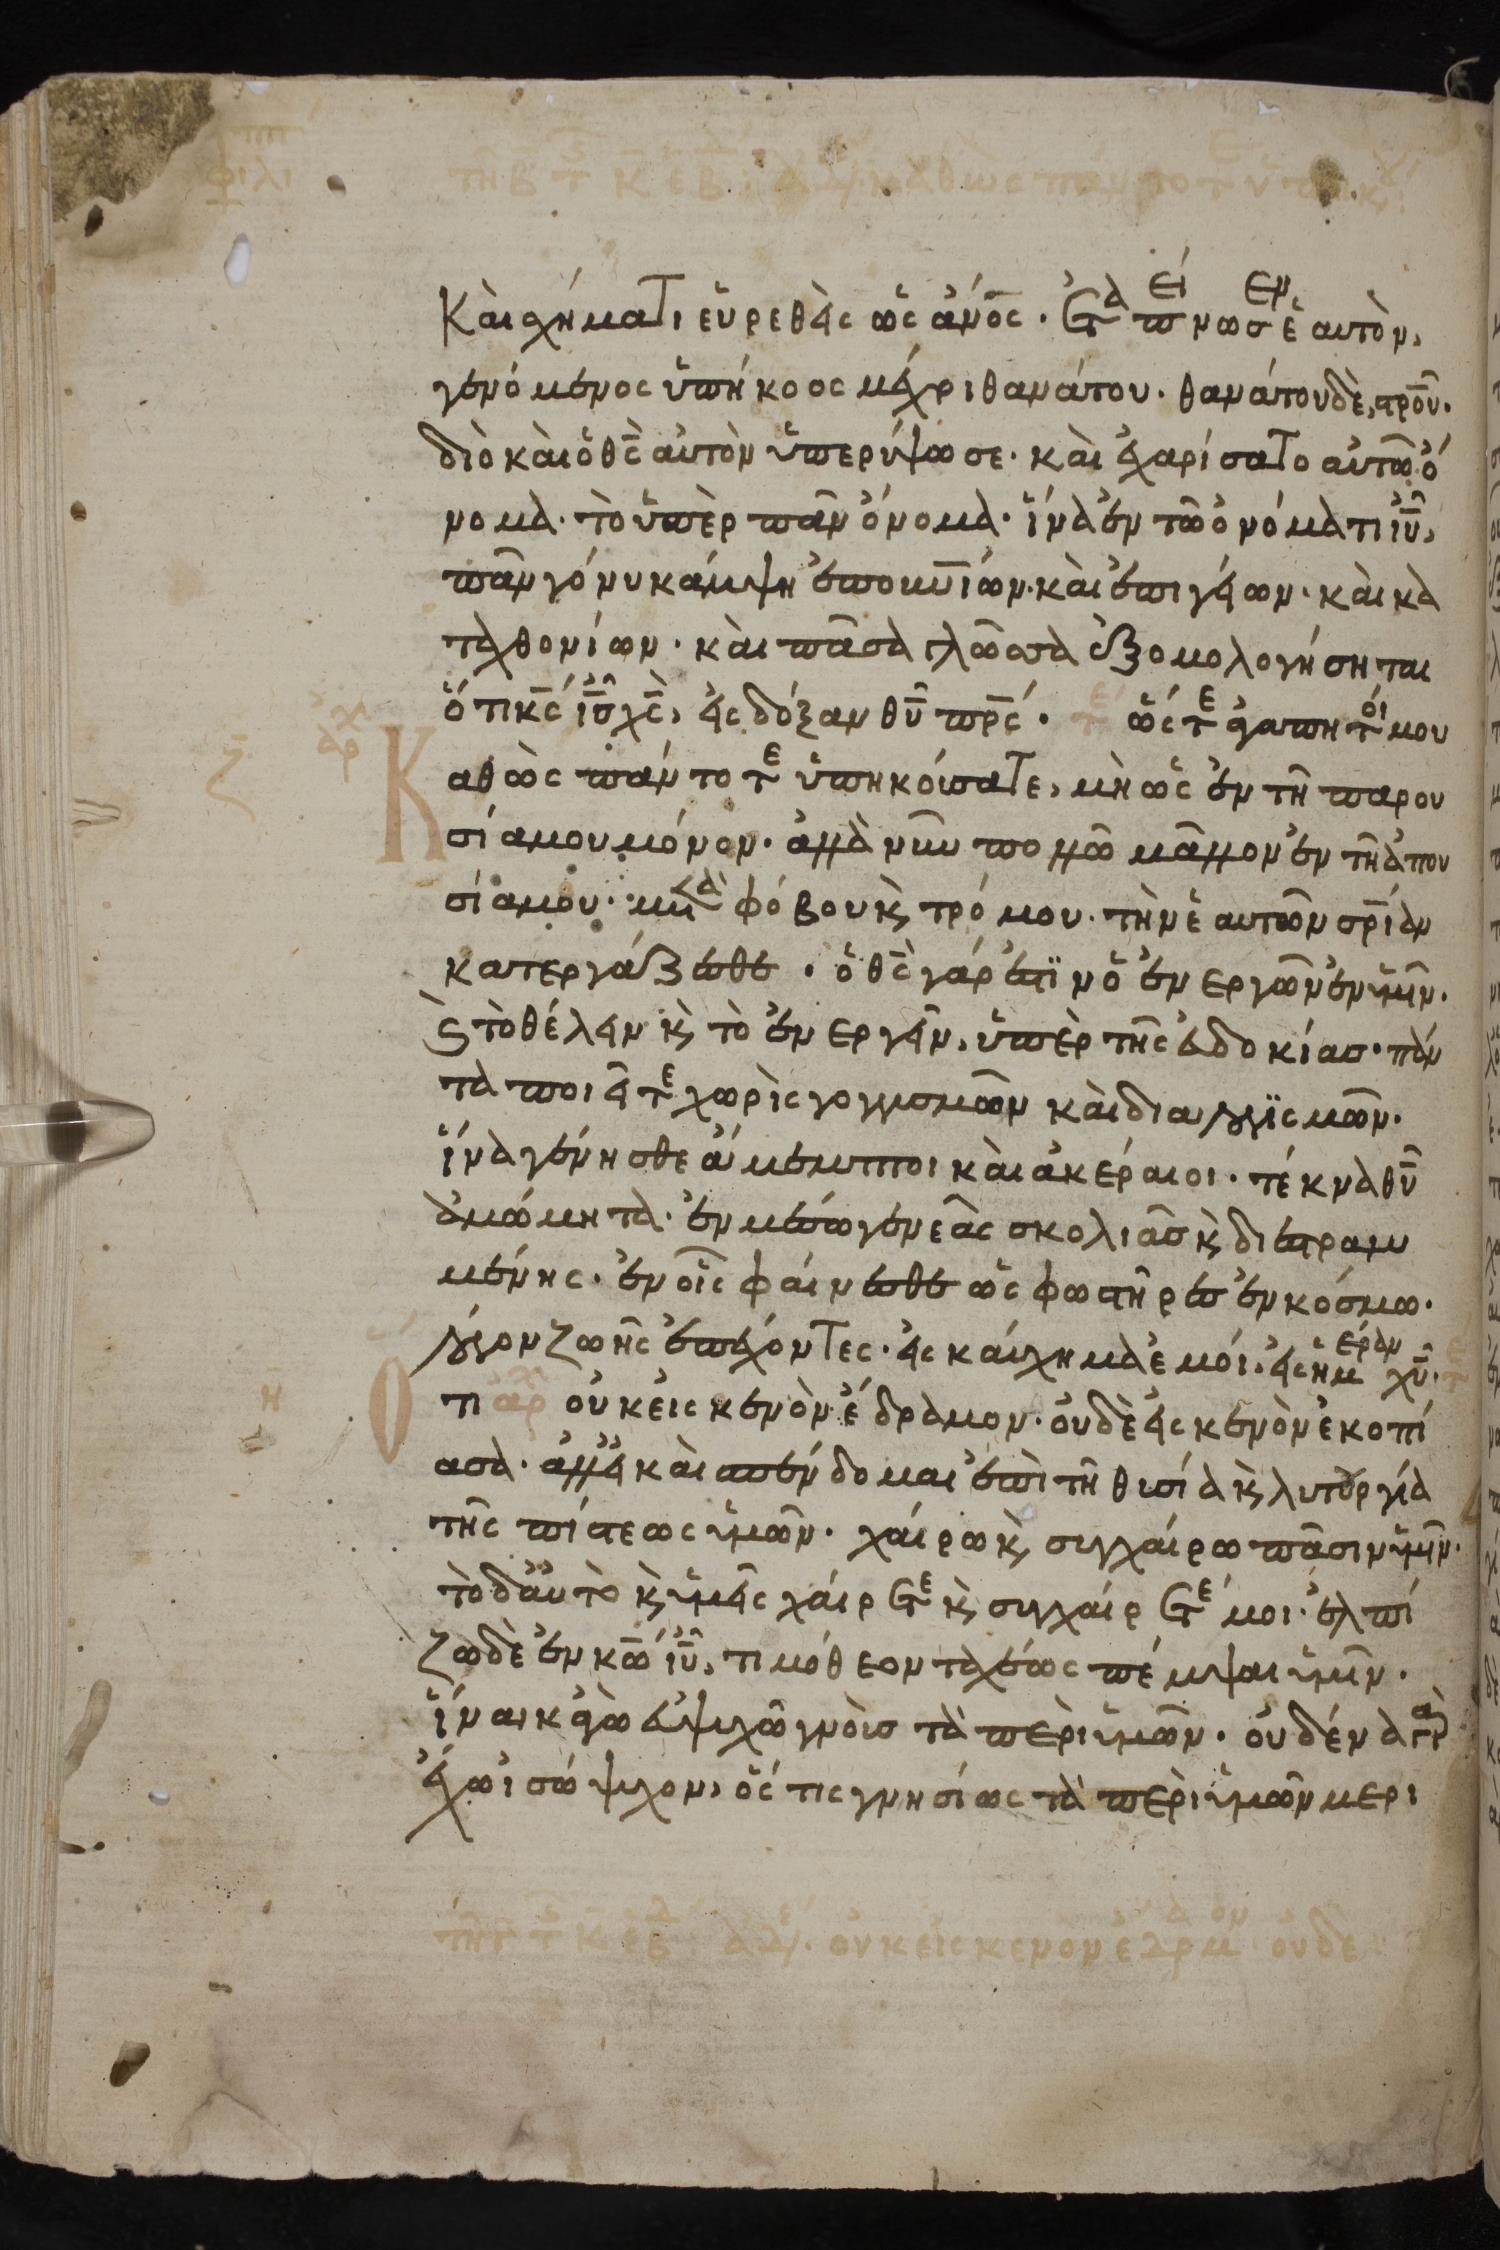 φιλιππ
τῆ β τ κ εβ καθὼς πάντοτ ὑπηκ
Καὶ σχήματι εὑρεθεὶς ὡς ἀνο̅ς· ἐταπείνωσεν ἑαυτὸν,
γενόμενος ὑπήκοος μέχρι θανάτου· θανάτου δὲ, στρο̅υ·
διὸ καὶ ὁ θς̅ αὐτὸν ὑπερύψωσε· καὶ ἐχαρίσατο αὐτῶ ὄ
νομα· τὸ ὑπὲρ πᾶν ὄνομα· ἵνα ἐν τῶ ὀνόματι ἰυ̅,
πᾶν γόνυ κάμψη ἐπουνίων· καὶ ἐπιγείων· καὶ κα
ταχθονίων· καὶ πᾶσα γλῶσσα ἐξομολογήσηται
ὅτι κς̅ ἰς̅ χς̅, εἰς δόξαν θυ̅ πρς̅· τε ὥστε ἀγαπητοί μου
ζ ἀρχ Καθὼς πάντοτε ὑπηκούσατε, μὴ ὡς ἐν τῆ παρου
σία μου μόνον· ἀλλὰ νῦν πολλῶ μᾶλλον ἐν τῆ ἀπου
σία μου· μετὰ φόβου κ τρόμου· τὴν ἑαυτῶν σρ̅ίαν
κατεργάζεσθε· ὁ θς̅ γάρ ἐστιν ὁ ἐνεργῶν ἐν ὑμῖν·
κ τὸ θέλειν κ τὸ ἐνεργεῖν, ὑπὲρ τῆς εὐδοκίας· πάν
τα ποιεῖτε χωρὶς γογγυσμῶν καὶ διαλογισμῶν·
ἵνα γένησθε ἄμεμπτοι καὶ ἀκέραιοι· τέκνα θυ̅
ἀμώμητα· ἐν μέσω γενεᾶς σκολιᾶς κ διεστραμ
μένης· ἐν οἷς φαίνεσθε ὡς φωστῆρες ἐν κόσμω·
λόγον ζωῆς ἐπέχοντες· εἰς καύχημα ἐμοί· εἰς ἡμέραν χυ̅· τε
η Ὅτι ἀρχ οὐκ εἰς κενὸν ἔδραμον· οὐδὲ εἰς κενὸν ἐκοπί
ασα· ἀλλ εἰ καὶ σπένδομαι ἐπὶ τῆ θυσία κ λυτουργία
τῆς πίστεως ὑμῶν· χαίρω κ συγχαίρω πᾶσιν ὑμῖν·
τὸ δ αὐτὸ κ ὑμεῖς χαίρετε κ συγχαίρετέ μοι· ἐλπί
ζω δὲ ἐν κω̅ ἰυ̅, τιμόθεον ταχέως πέμψαι ὑμῖν·
ἵνα κἀγὼ εὐψυχῶ γνοὺς τὰ περὶ ὑμῶν· οὐδένα γὰρ
ἔχω ἰσόψυχον, ὅστις γνησίως τὰ περὶ ὑμῶν μερι
τῆ γ τ κ εβ ἀδ· οὐκ εἰς κενον ἔδραμον οὐδὲ